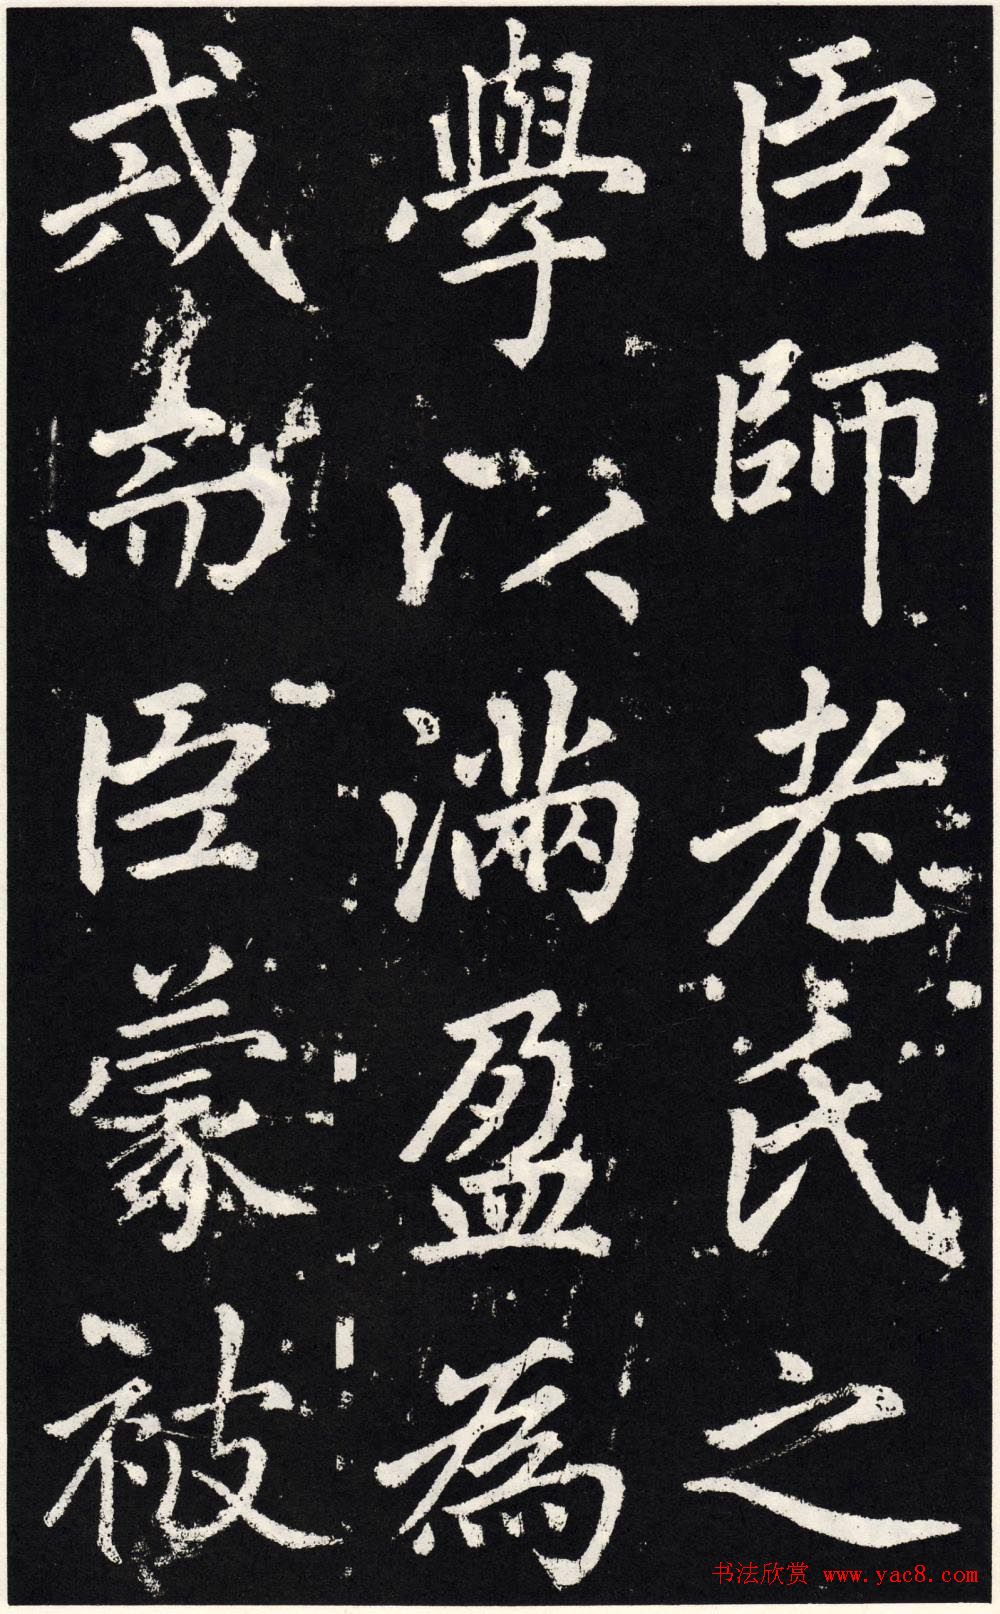 臣師老氏之
學以滿盈為
戒而臣蒙被
书法欣赏 www.yac8.com